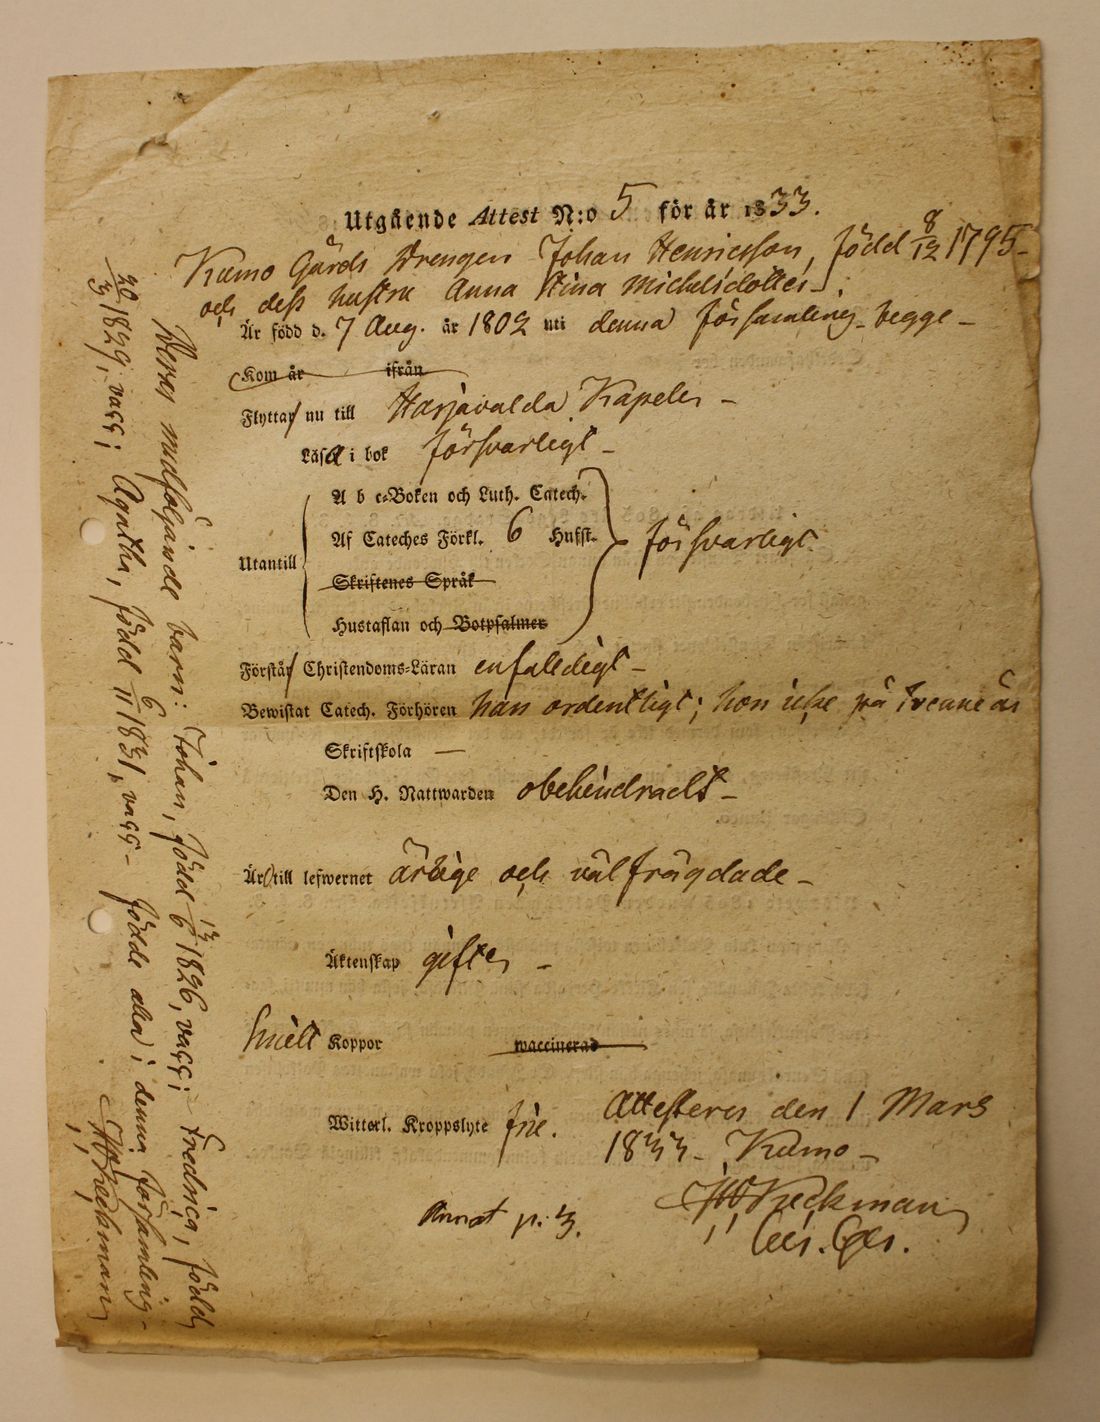 Utgående Attest N:o 5 för år 1833.
Kumo Gårds Drengen Johan Henricsson, född 8/12 1795-
och dess hustru Anna Stina Michelsdotter -;
Är född d. 7 Aug. år 1802 uti denna församling, begge -
Kom år ifrån
Flyttar nu till Harjavalda Kapell -
Läsa i bok försvarligt -
Utantill
A b c-Boken och Luth. Catech.
Af Cateches Förkl. 6 Hufst.
försvarligt
Skriftenes Språk
Hustaflan och Botpsalmer
Förstår Christendoms-Läran enfaldigt -
Bewistat Catech. Förhören han ordentligt; hon icke på tvenne år
Skriftskola —
Den H. Nattwarden obehindradt -
Är till lefwernet ärlige och välfrägdade -
Äktenskap gifte -
Koppor waccinerad
Witterl. Kroppslyte frie.
Attesteres den 1 Mars
1833 - Kumo -
Keckman
Annot p. 3.
Deras medföljande barn: Johan, född 13/6 1826, vacc; Fredrica, född
20/3 1829, vacc; Agatha, född 6/11 1831, vacc - födde alla i denna församling -
Keckman